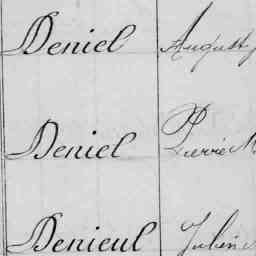 Deniel August
Deniel Pierre M
Denieul Julien